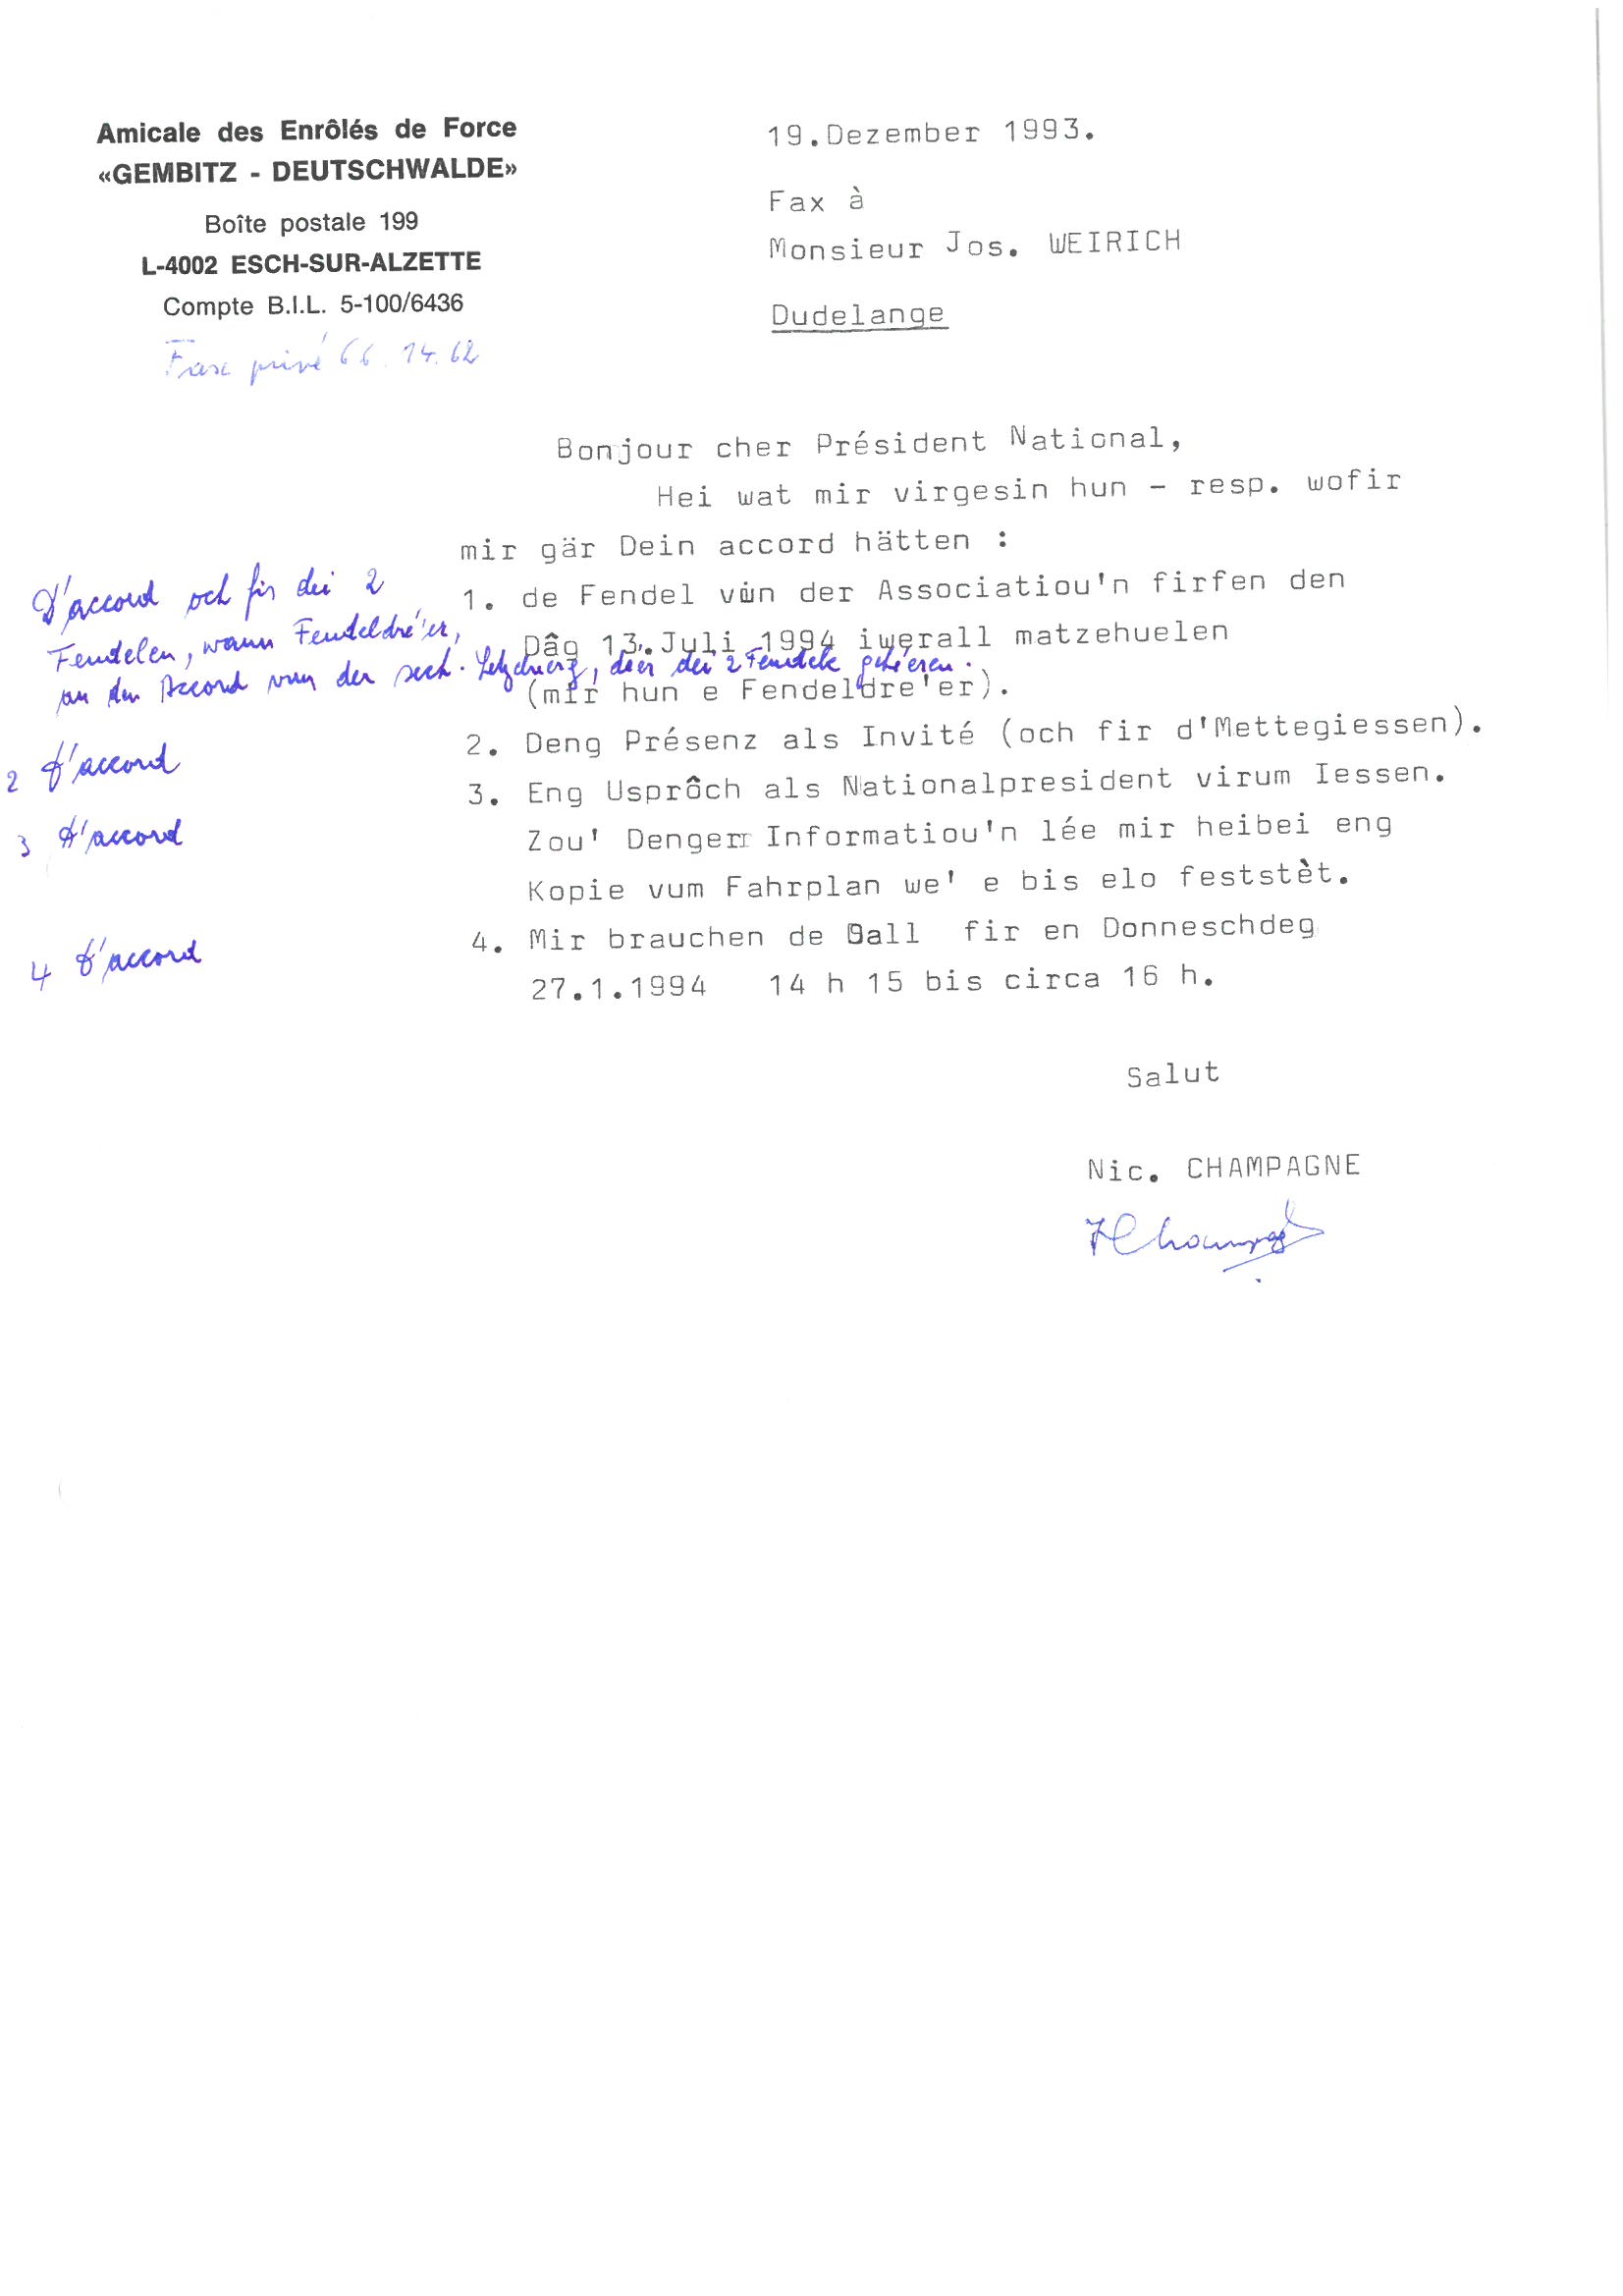 Amicale des Enrôlés de Force
«GEMBITZ - DEUTSCHWALDE»
Boîte postale 199
L-4002 ESCH-SUR-ALZETTE
Compte B.I.L. 5-100/6436
Fax privé 66.14.62
19.Dezember 1993.
Fax à
Monsieur Jos. WEIRICH
Dudelange
Bonjour cher Président National,
Hei wat mir virgesin hun - resp. wofir
mir gär Dein accord hätten :
1. de Fendel vun der Associatiou'n firfen den
Dâg 13.Juli 1994 iwerall matzehuelen
(mir hun e Fendeldre'er).
2. Deng Présenz als Invité (och fir d'Mettegiessen).
3. Eng Usprôch als Nationalpresident virum Iessen.
Zou' Denger Informatiou'n lée mir heibei eng
Kopie vum Fahrplan we' e bis elo feststèt.
4. Mir brauchen de Sall fir en Donneschdeg
27.1.1994 14 h 15 bis circa 16 h.
D'accord och fir dei 2
Fendelen, wann Fendeldré'er,
an den Accord vun der sect. , deer dei 2 Fendele gehéeren.
2 d'accord
3 d'accord
4 d'accord
Salut
Nic. CHAMPAGNE